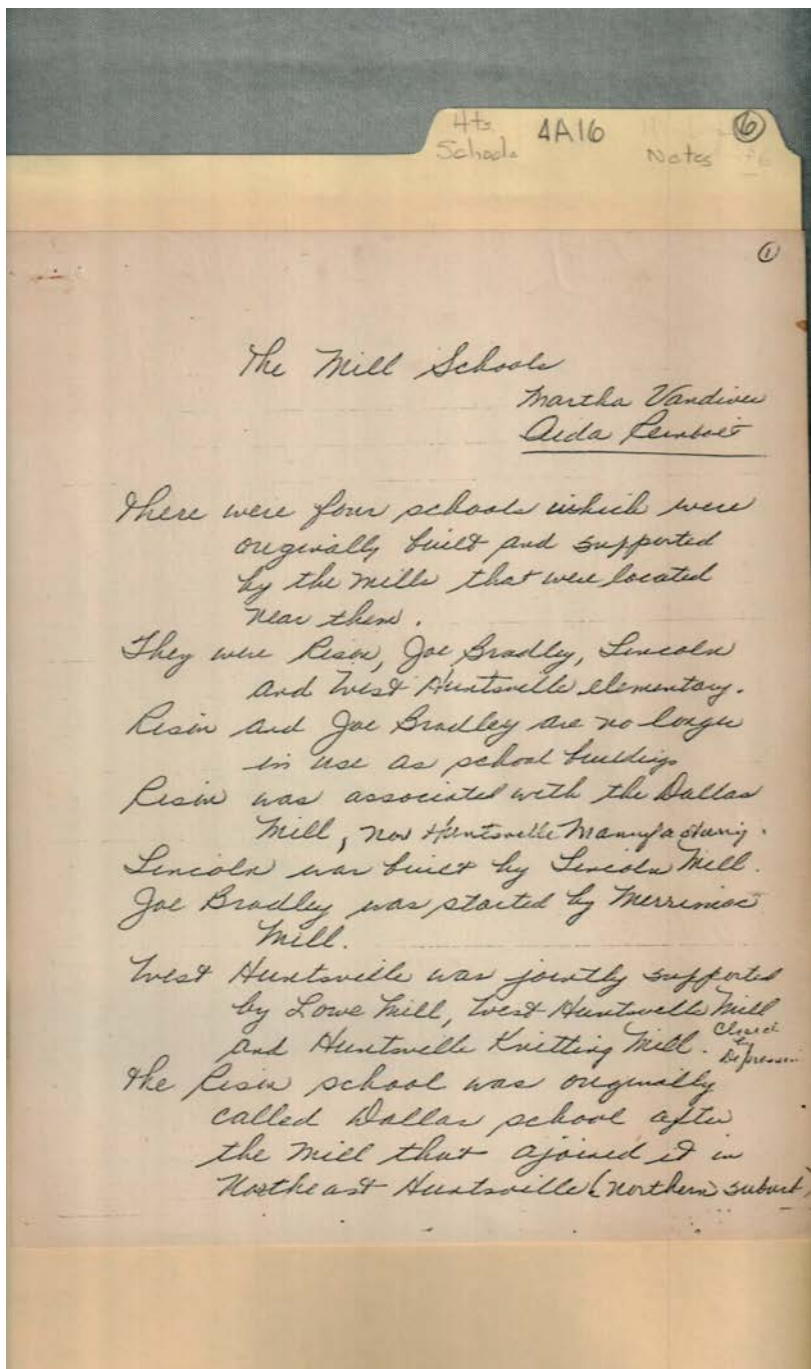 4ts
Schools
4A16
Notes
6
1
The Mill Schools
Martha Vandiver
Aida
There were four schools which were
originally built and supported
by the mills that were located
near them.
They were Rison, Joe Bradley, Lincoln
and West Huntsville elementary.
Rison and Joe Bradley are no longer
in use as school buildings
Rison was associated with the Dallas
Mill, now Huntsville Manufacturing.
Lincoln was built by Lincoln Mill.
Joe Bradley was started by Merrimac
Mill.
West Huntsville was jointly supported
by Lowe Mill, West Huntsville Mill
and Huntsville Knitting Mill. Closed
by
Depression
The Rison school was originally
called Dallas school after
the mill that ajoined it in
Northeast Huntsville (northern suburb)